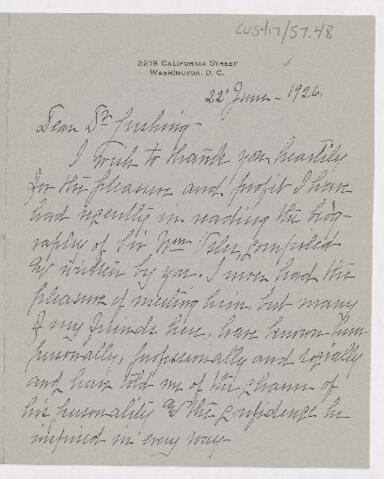 CUS417/57.48
2219 California Street
Washington, D. C.
22 June - 1926.
Dear Dr Cushing -
I wish to thank you heartily
for the pleasure and profit I have
had recently in reading the biog-
raphy of Sir Wm Osler compiled
& written by you. I never had the
pleasure of meeting him, but many
of my friends here, have known him
personally, professionally and socially
and have told me of the charm of
his personality & the confidence he
inspired in every way